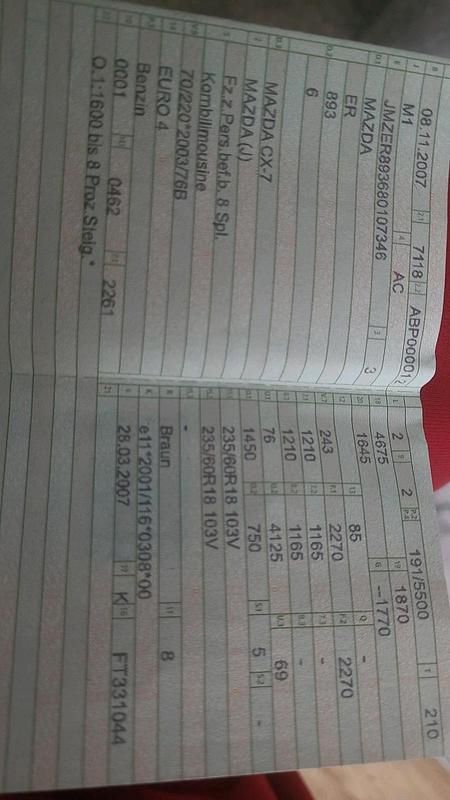 B 08.11.2007 2.1 7118 2.2 ABP00001
J M1 4 AC
E JMZER893680107346 3 3
D.1 MAZDA
D.2 ER
893
6
D.3 MAZDA CX-7
2 MAZDA (J)
5 Fz.z.Pers.bef.b. 8 Spl.
Kombilimousine
V.9 70/220*2003/76B
14 EURO 4
P.3 Benzin
10 0001 14.1 0462 P.1 2261
22 O.1:1600 bis 8 Proz.Steig.*
L 2 9 2 P.2 P.4 191/5500 T 210
18 4675 19 1870
20 1645 G --1770
12 - 13 85 Q -
V.7 243 F.1 2270 F.2 2270
7.1 1210 7.2 1165 7.3 -
8.1 1210 8.2 1165 8.3 -
U.1 76 U.2 4125 U.3 69
O.1 1450 O.2 750 S.1 5 S.2 -
15.1 235/60R18 103V
15.2 235/60R18 103V
15.3 -
R Braun 11 8
K e11*2001/116*0308*00
6 28.03.2007 17 K 16 FT331044
21